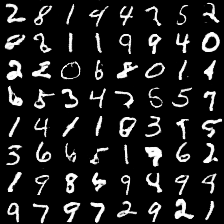 2 8 1 9 4 2 5 2
2 8 1 1 9 9 4 0
2 2 0 6 8 0 1 1
6 5 3 4 7 6 5 7
1 4 1 1 8 3 1 5
5 6 6 5 1 9 6 2
1 9 8 5 9 4 9 4
9 7 9 7 2 9 2 1